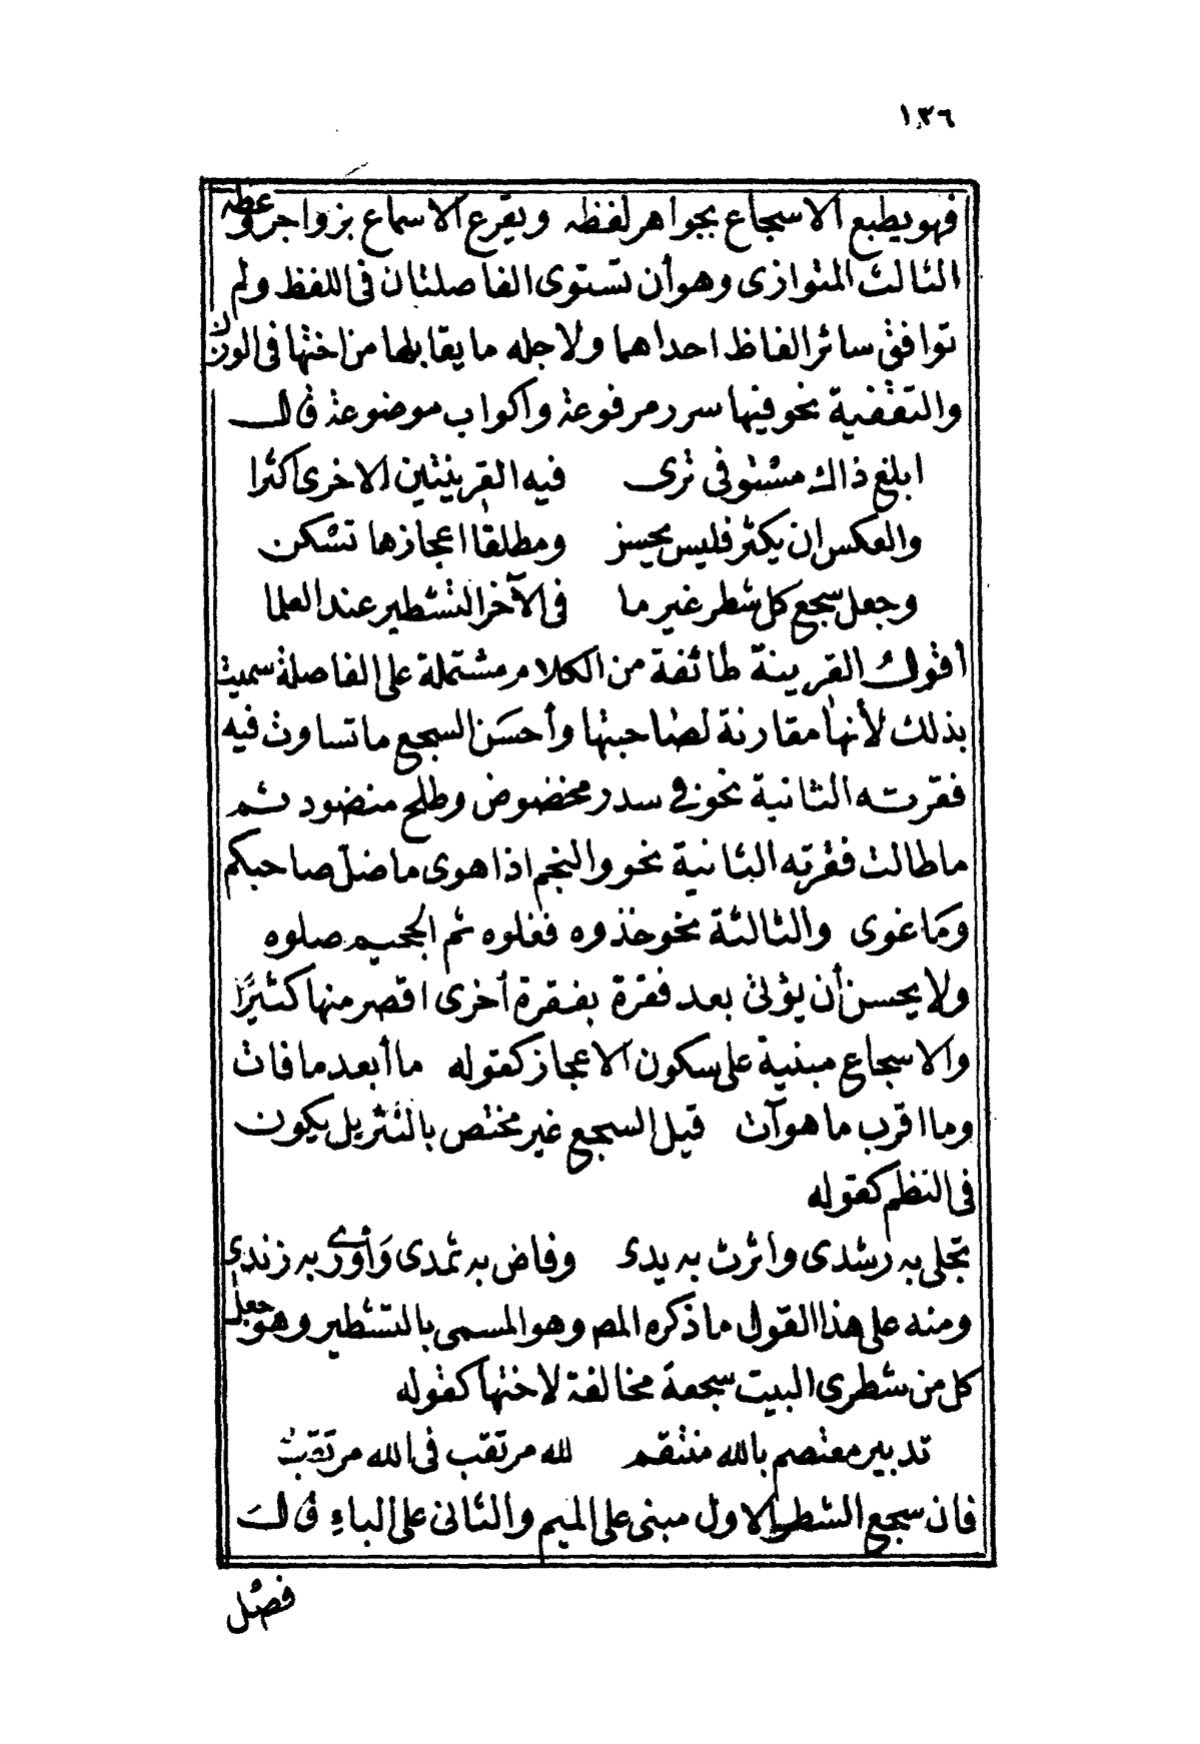 ١٣٦
فهو يطبع الاسجاع بجواهر لفظه ويقرع الاسماع بزواجر وعظه
الثالث المتوازى وهو أن تستوى الفاصلتان فى اللفظ ولم
توافق سائر الفاظ احداهما ولاجله ما يقابلها من اختها فى الوزن
والتقفية نحو فيها سرر مرفوعة واكواب موضوعة قال
ابلغ ذاك مستو فى ترى فيه القرينتين الاخرى اكثرا
والعكس ان يكثر فليس يحسن ومطلقا اعجازها تسكن
وجعل سجع كل شطر غير ما فى الآخر التشطير عند العلما
أقول القرينة طائفة من الكلام مشتملة على الفاصلة سميت
بذلك لأنها مقارنة لصاحبتها وأحسن السجع ما تساوت فيه
فقرته الثانية نحو فى سدر مخضوض وطلح منضود ثم
ما طالت فقرته الثانية نحو والنجم اذا هوى ما ضل صاحبكم
وما غوى والثالثة نحو خذوه فغلوه ثم الجحيم صلوه
ولا يحسن أن يؤتى بعد فقرة بفقرة أخرى اقصر منها كثيرًا
والاسجاع مبنية على سكون الاعجاز كقوله ما أبعد ما فات
وما اقرب ما هو آت قيل السجع غير مختص بالنثر بل يكون
فى النظم كقوله
تجلى به رشدى واثرت به يدى وفاض به ثمدى وَأورى به زندى
ومنه على هذا القول ما ذكره المص وهو المسمى بالتشطير وهو جعل
كل من شطرى البيت سجعة مخالفة لاختها كقوله
تدبير معتصم بالله منتقم لله مرتقب فى الله مرتقب
فان سجع الشطر الاول مبنى على الميم والثانى على الباءِ قال
فصل